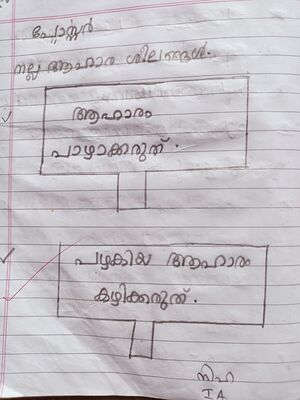 പോസ്റ്റർ
നല്ല ആഹാര ശീലങ്ങൾ.
ആഹാരം
പാഴാക്കരുത്.
പഴകിയ ആഹാരം
കഴിക്കരുത്.
നിഹ
I A